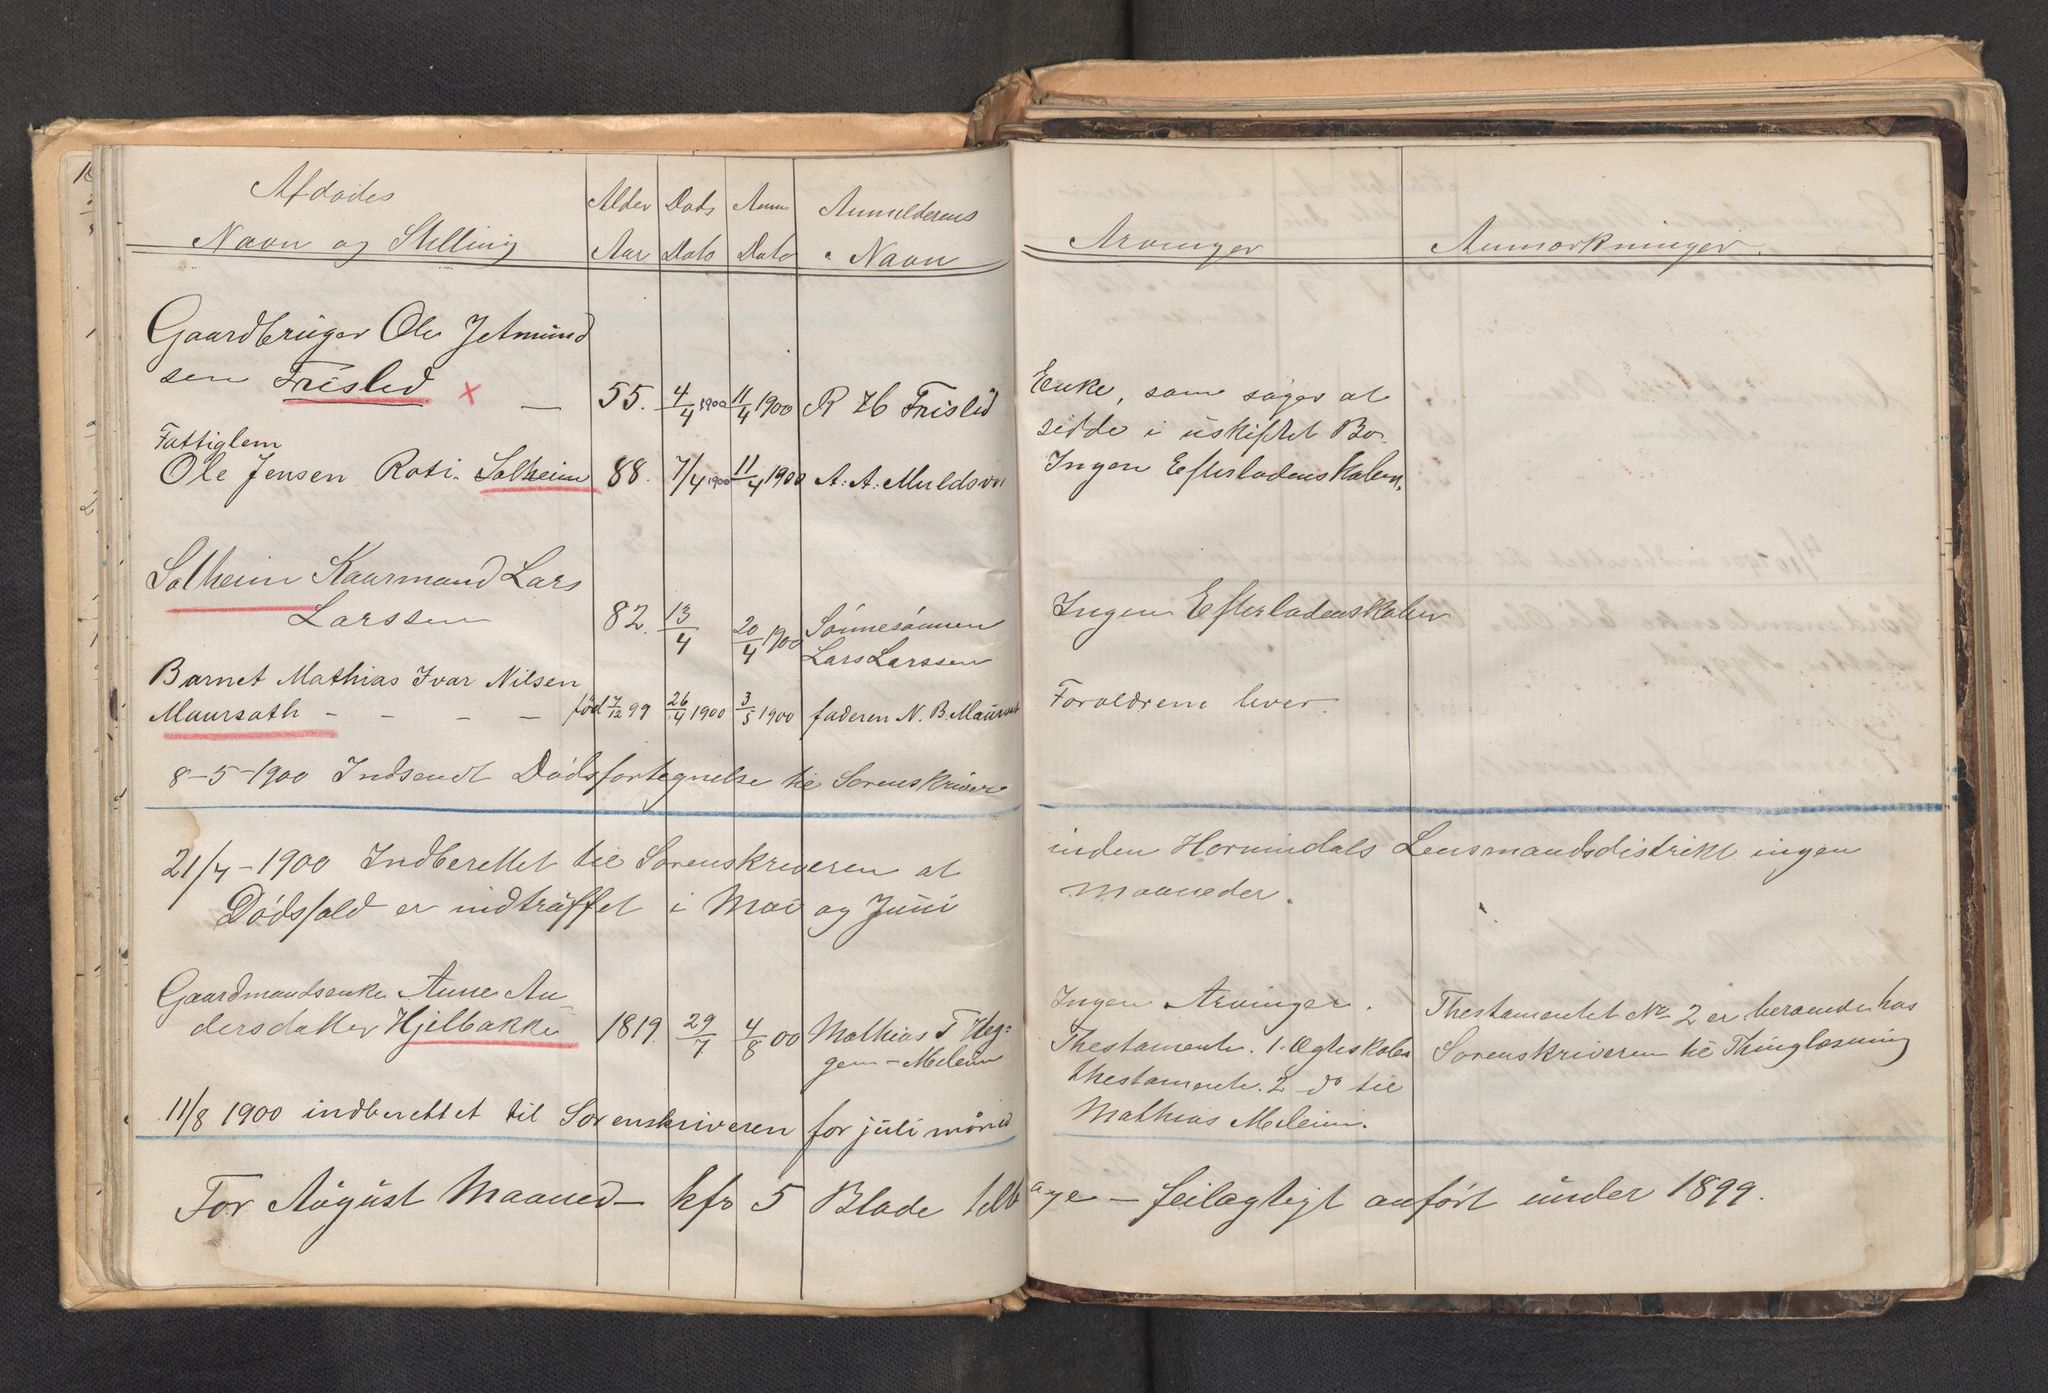 Afdødes
Navn og Stilling
Alder
Aar
Døds
Dato
Anm
Dato
Anmelderens
Navn
Arvinger
Anmærkninger.
Gaardbruger Ole Jetmund
sen Frislid × — 55. 4/4 1900 11/4 1900 R H Frislid
Enke, som søger at
sidde i uskiftet Bo.
Fattiglem
Ole Jensen Roti. Solheim 88. 7/4 1900 11/4 1900 A: A: Muldsvor
Ingen Efterladenskaber.
Solheim Kaarmand Lars
Larssen 82. 13/4 20/4 1900 Sønnesønnen
Lars Larssen
Ingen Efterladenskaber
Barnet Mathias Ivar Nilsen
Maursæth - - - - født 7/12 99 26/4 1900 3/5 1900 faderen N. B. Maurseth
Forældrene lever.
8-5-1900 Indsendt Dødsfortegnelse til Sorenskriver
21/7-1900 Indberettet til Sorenskriveren at inden Hornindals Lensmandsdistrikt ingen
Dødsfald er indträffet i Mai og Juni maaneder.
Gaardmandsenke Anne An
dersdatter Hjelbakke 1819. 29/7 4/8 00 Mathias T Heg=
gem - Meleim
Ingen Arvinger.
Thestamente. 1. Ægteskaber
thestamente. 2 do til
Mathias Meleim.
Thestamentet No 2 er beroende hos
Sorenskriveren til Thinglæsning
11/8 1900 indberettet til Sorenskriveren for juli måned
For August Maaned - kfr 5 Blade tilbage - feilagtigt anført under 1899.